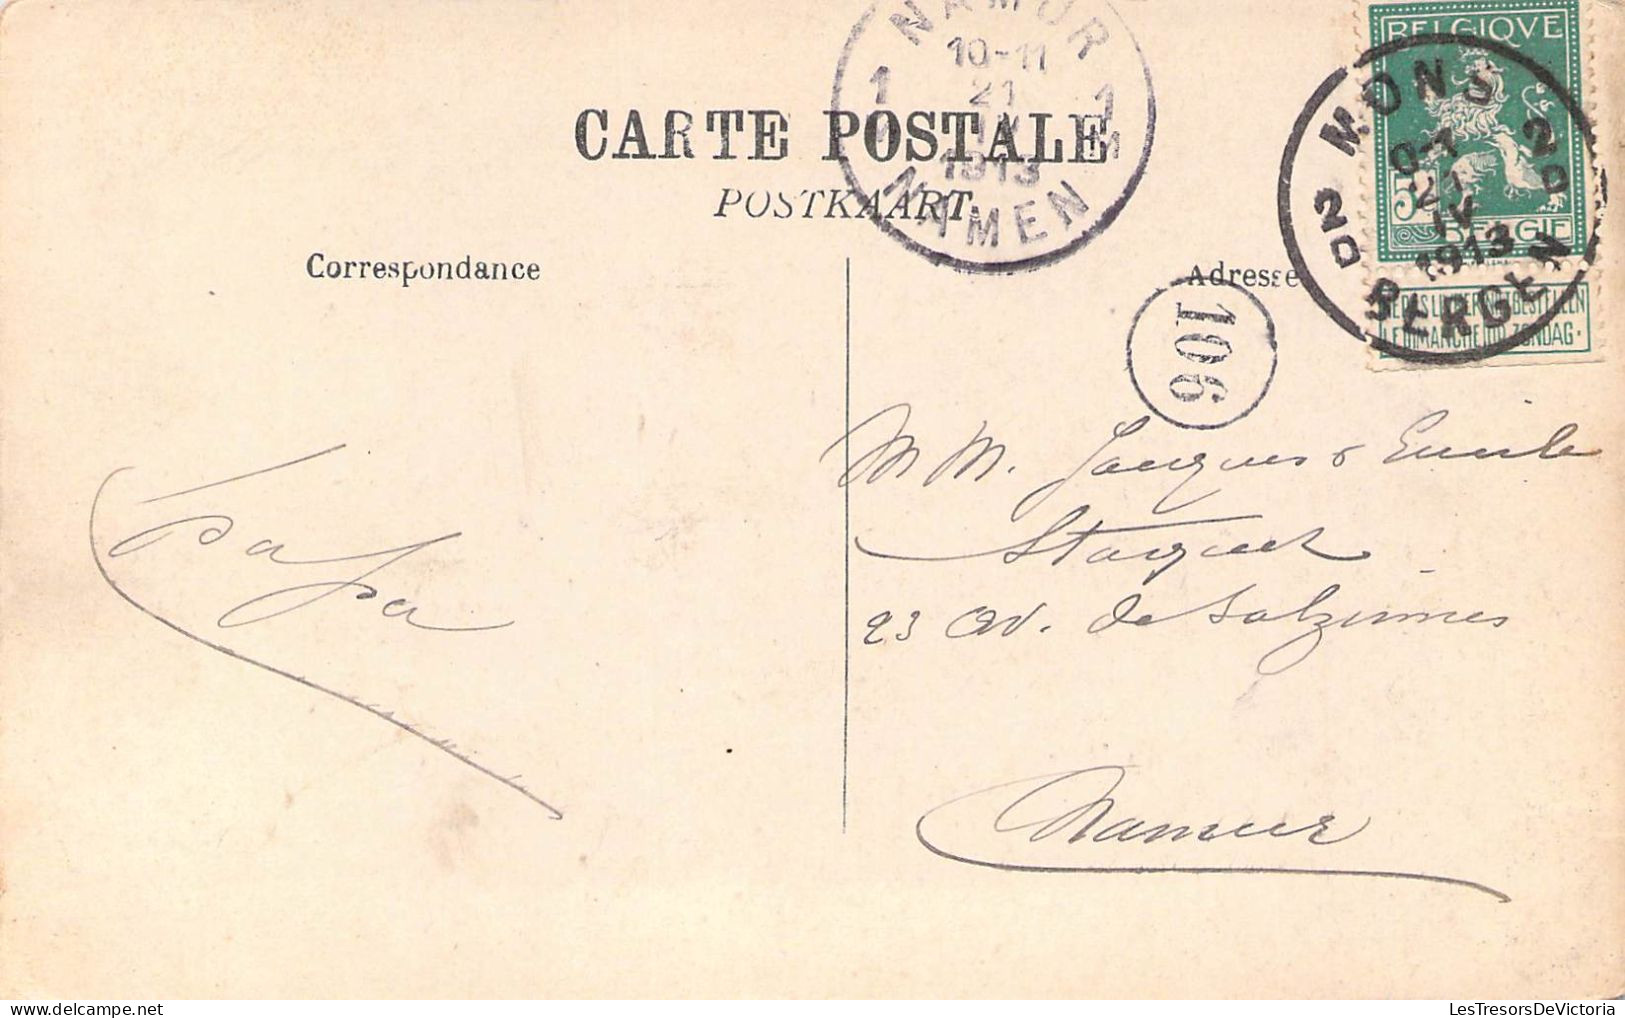 CARTE POSTALE
POSTKAART.
Correspondance
Adresse
NAMUR
10-11
21
IV
1913
1 1
NAMEN
BELGIQVE
5
BELGIE
MONS
0-1
21
IV
1913
2D 2D
BERGEN
NE PAS LIVRER NIET BESTELLEN
LE DIMANCHE OP ZONDAG.
106
Papa
MM. Jacques & Emile
Stacquet
23 Av. de Salzinnes
Namur
LesTresorsDeVictoria